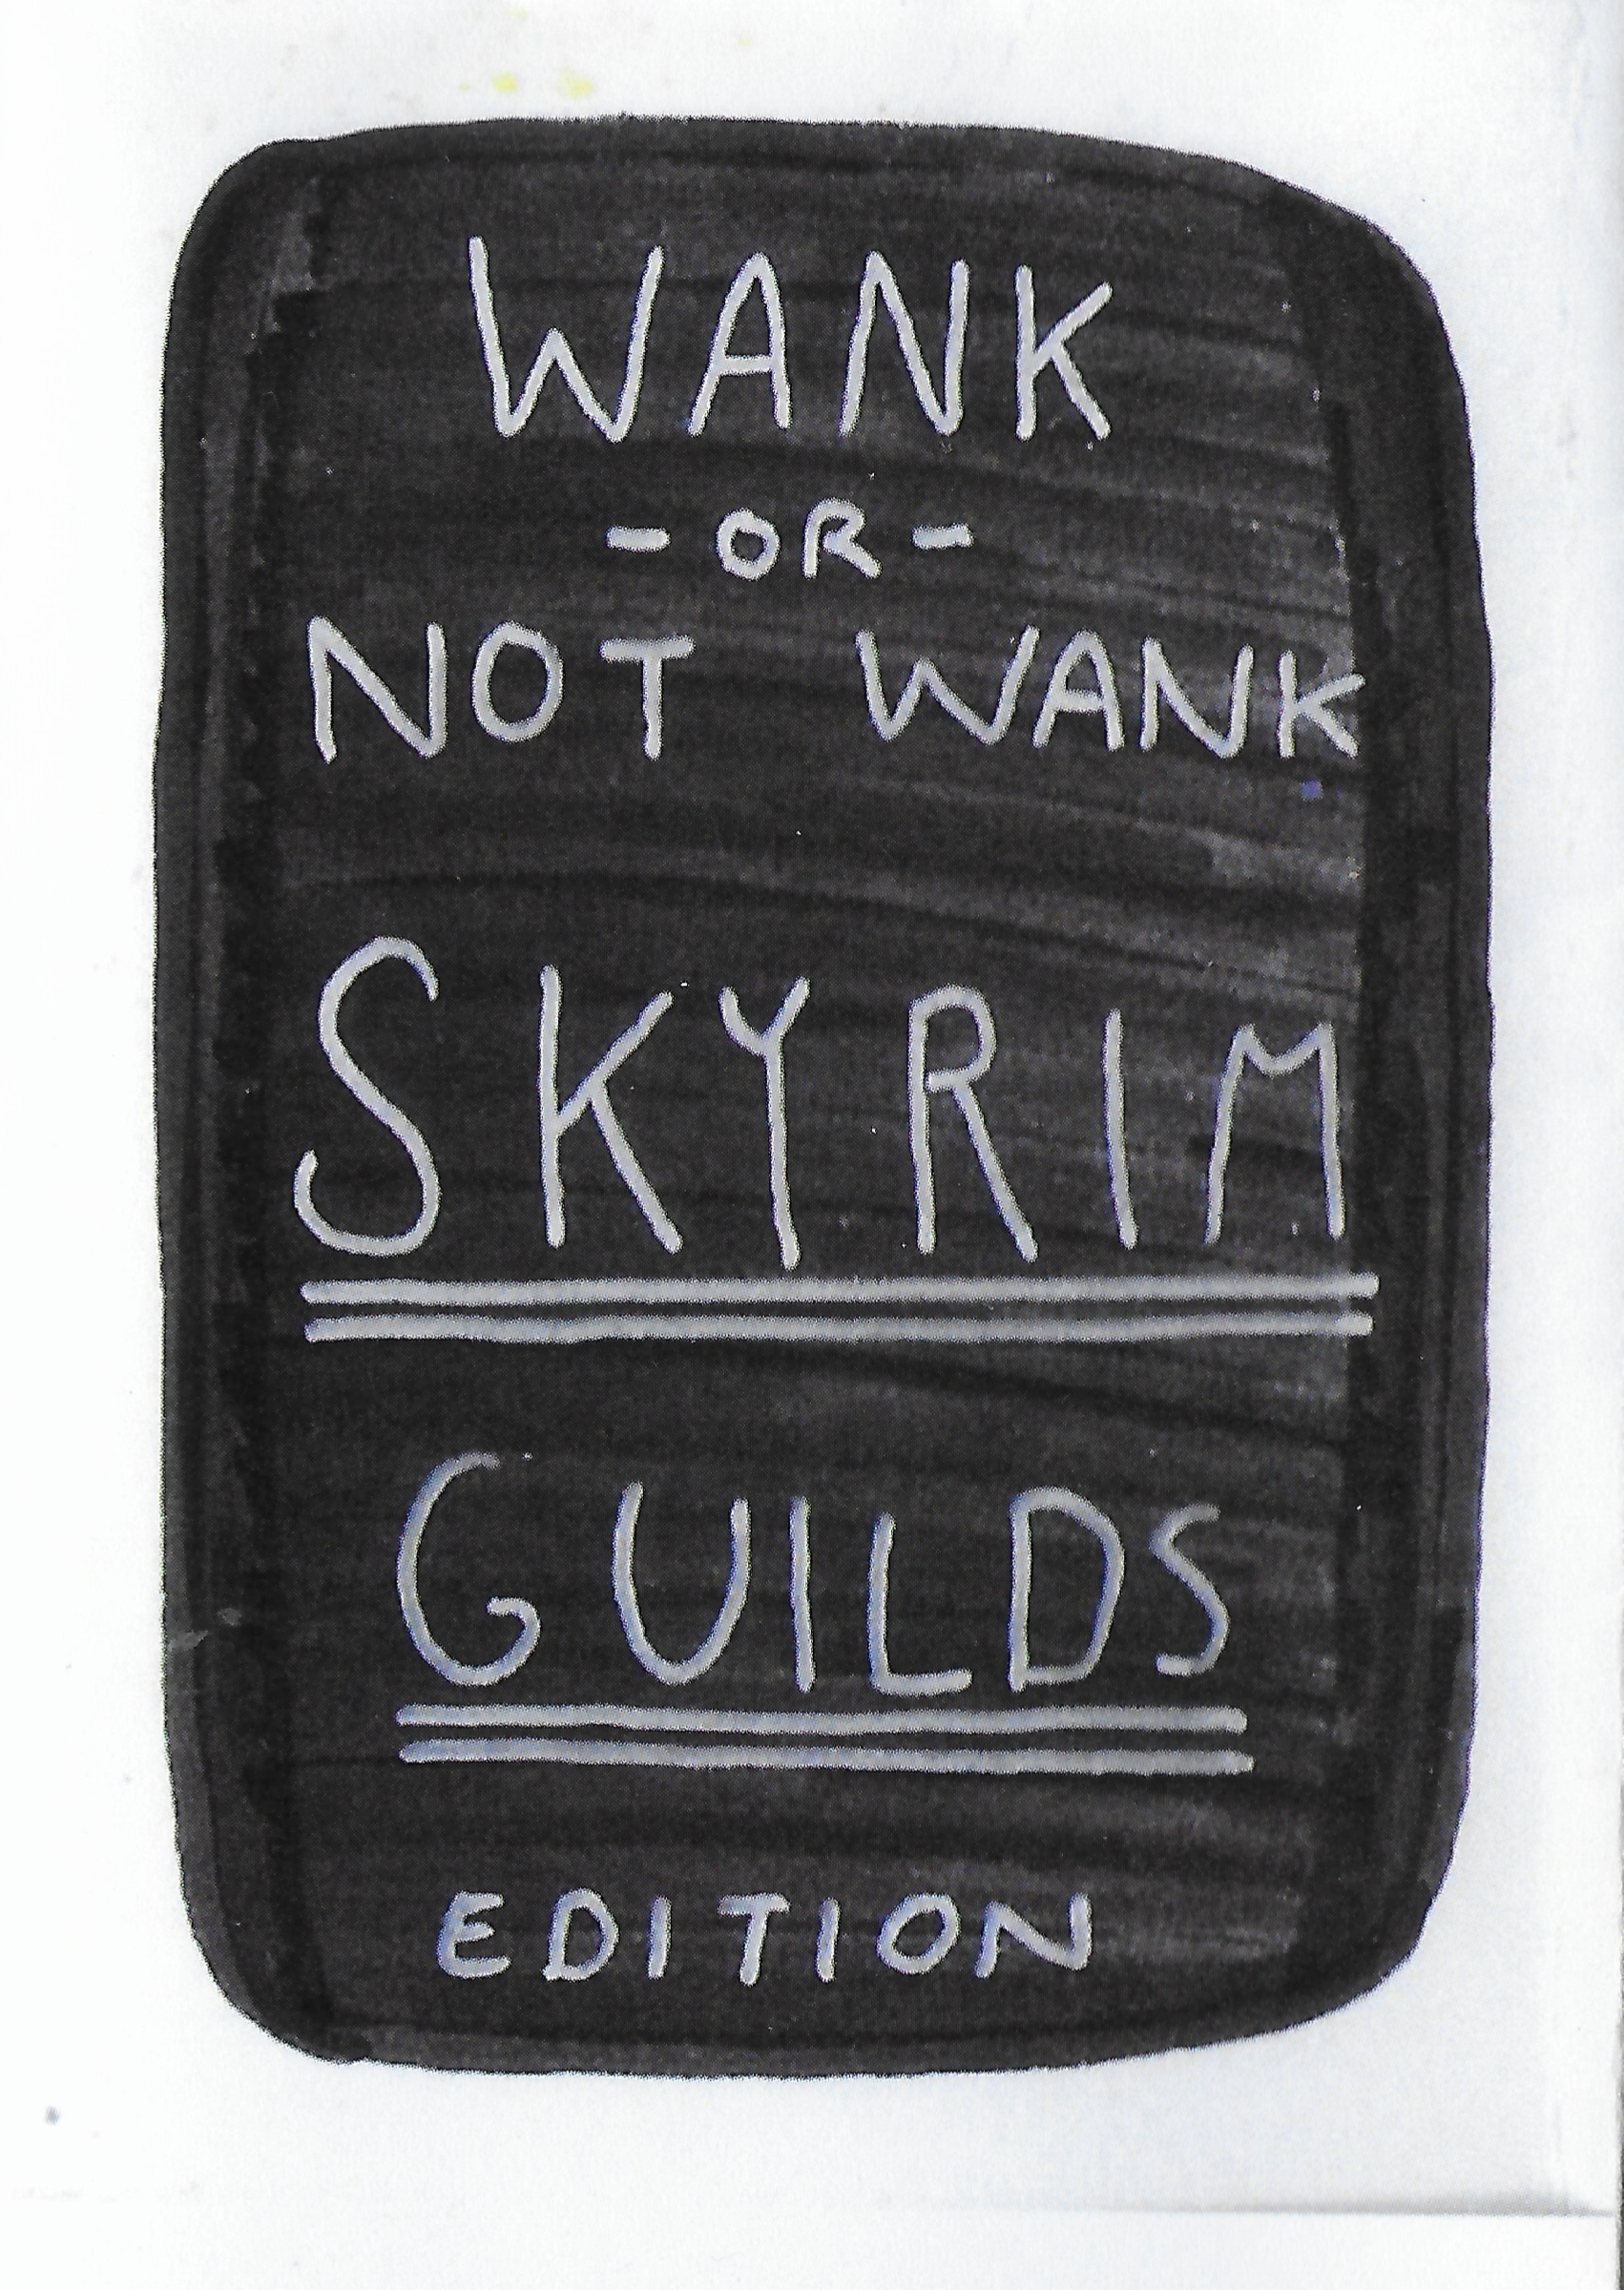 WANK
- OR -
NOT WANK
SKYRIM
GUILDS
EDITION